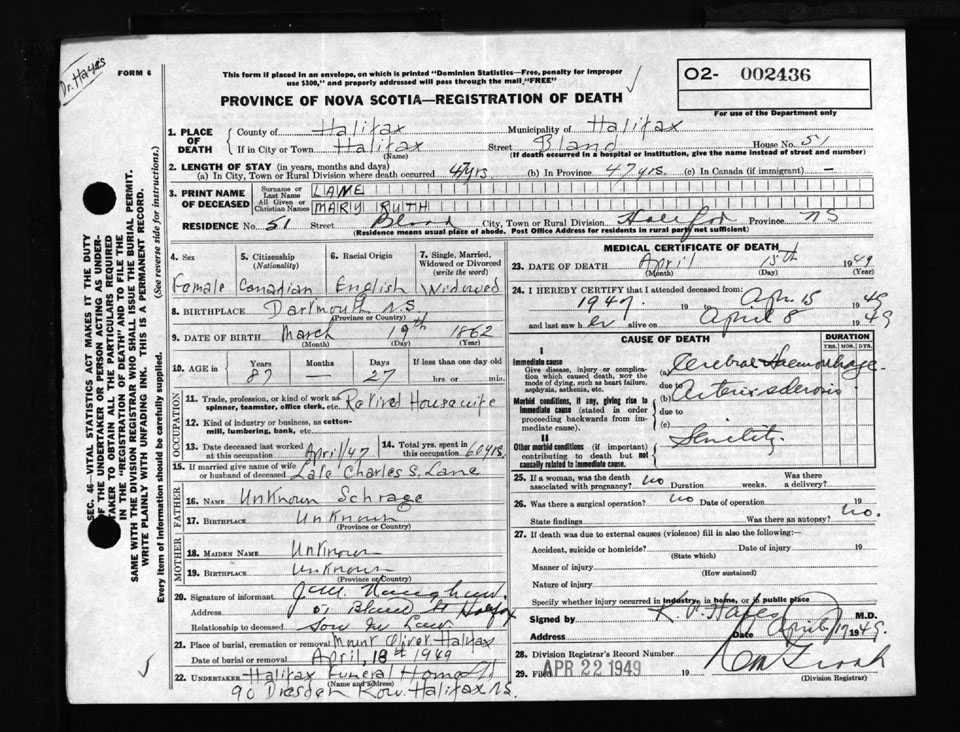 Dr. Hayes
FORM 6
This form if placed in an envelope, on which is printed "Dominion Statistics—Free, penalty for improper
use $300," and properly addressed will pass through the mail "FREE"
PROVINCE OF NOVA SCOTIA—REGISTRATION OF DEATH
O2- 002436
For use of the Department only
SEC. 46 - VITAL STATISTICS ACT MAKES IT THE DUTY
OF THE UNDERTAKER OR PERSON ACTING AS UNDER-
TAKER TO OBTAIN ALL THE PARTICULARS REQUIRED
IN THE "REGISTRATION OF DEATH" AND TO FILE THE
SAME WITH THE DIVISION REGISTRAR WHO SHALL ISSUE THE BURIAL PERMIT.
WRITE PLAINLY WITH UNFADING INK. THIS IS A PERMANENT RECORD.
Every item of information should be carefully supplied. (See reverse side for instructions.)
1. PLACE OF DEATH County of Halifax Municipality of Halifax
If in City or Town Halifax (Name) Street Bland House No. 51
(If death occurred in a hospital or institution, give the name instead of street and number)
2. LENGTH OF STAY (in years, months and days)
(a) In City, Town or Rural Division where death occurred 47yrs. (b) In Province 47 yrs. (c) In Canada (if immigrant) —
3. PRINT NAME OF DECEASED Surname or Last Name LANE
All Given or Christian Names MARY RUTH
RESIDENCE No. 51 Street Bland City, Town or Rural Division Halifax Province NS
(Residence means usual place of abode. Post Office Address for residents in rural parts not sufficient)
4. Sex 5. Citizenship (Nationality) 6. Racial Origin 7. Single, Married, Widowed or Divorced (write the word)
Female Canadian English Widowed
8. BIRTHPLACE Dartmouth N.S
(Province or Country)
9. DATE OF BIRTH March 19th 1862
(Month) (Day) (Year)
10. AGE in Years Months Days If less than one day old
87 27 hrs. or min.
OCCUPATION
11. Trade, profession, or kind of work as spinner, teamster, office clerk, etc. Retired Housewife
12. Kind of industry or business, as cotton-mill, lumbering, bank, etc.
13. Date deceased last worked at this occupation April/47 14. Total yrs. spent in this occupation 60yrs.
15. If married give name of wife or husband of deceased Late Charles S. Lane
FATHER
16. NAME Unknown Schrage
17. BIRTHPLACE Unknown
(Province or Country)
MOTHER
18. MAIDEN NAME Unknown
19. BIRTHPLACE Unknown
(Province or Country)
20. Signature of informant
Address 51 Bland St Halifax
Relationship to deceased Son In Law
21. Place of burial, cremation or removal Mount Olivet Halifax
Date of burial or removal April, 18th 1949
22. UNDERTAKER Halifax Funeral Home
(Name and address)
90 Dresden Row. Halifax N.S.
MEDICAL CERTIFICATE OF DEATH
23. DATE OF DEATH April 15th 1949
(Month) (Day) (Year)
24. I HEREBY CERTIFY that I attended deceased from:
1947 19 to Apr. 15 1949
and last saw her alive on April 8 1949
CAUSE OF DEATH DURATION
YRS. MOS. DYS.
I
Immediate cause
Give disease, injury or complication which caused death, NOT the mode of dying, such as heart failure, asphyxia, asthenia, etc.
(a) Cerebral Haemorrhage
due to
Morbid conditions, if any, giving rise to immediate cause (stated in order proceeding backwards from immediate cause).
(b) Arteriosclerosis
due to
(c)
II
Other morbid conditions (if important) contributing to death but not causally related to immediate cause.
Senility
25. If a woman, was the death associated with pregnancy? no Duration weeks. Was there a delivery?
26. Was there a surgical operation? no Date of operation 19
State findings Was there an autopsy? no.
27. If death was due to external causes (violence) fill in also the following:—
Accident, suicide or homicide? Date of injury 19
(State which)
Manner of injury
(How sustained)
Nature of injury
Specify whether injury occurred in industry, in home, or in public place
Signed by Hayes M.D.
Address Date April 17 1949.
28. Division Registrar's Record Number
29. Filed APR 22 1949 19
(Division Registrar)